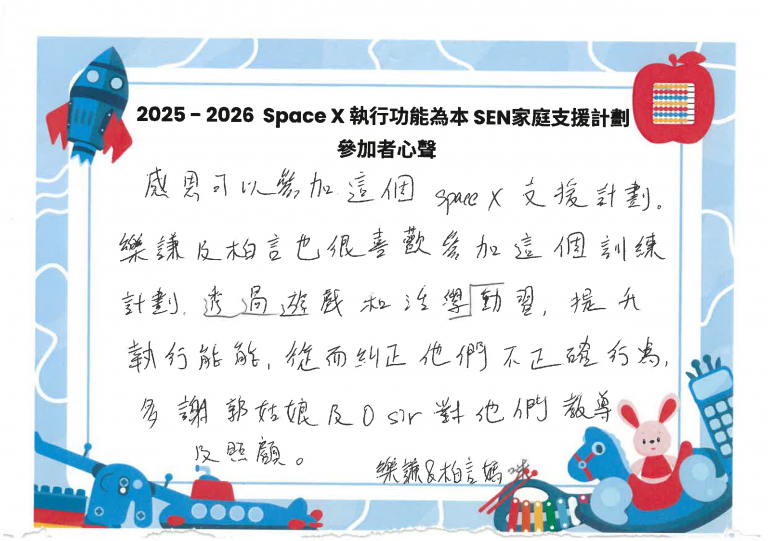 2025 – 2026 Space X 執行功能為本 SEN家庭支援計劃
參加者心聲
感恩可以參加這個 space X 支援計劃。
樂謙及柏言也很喜歡參加這個訓練
計劃, 透過遊戲和活學動習, 提升
執行能能, 從而糾正他們不正確行為,
多謝郭姑娘及O sir對他們教導
及照顧。
樂謙&柏言媽咪